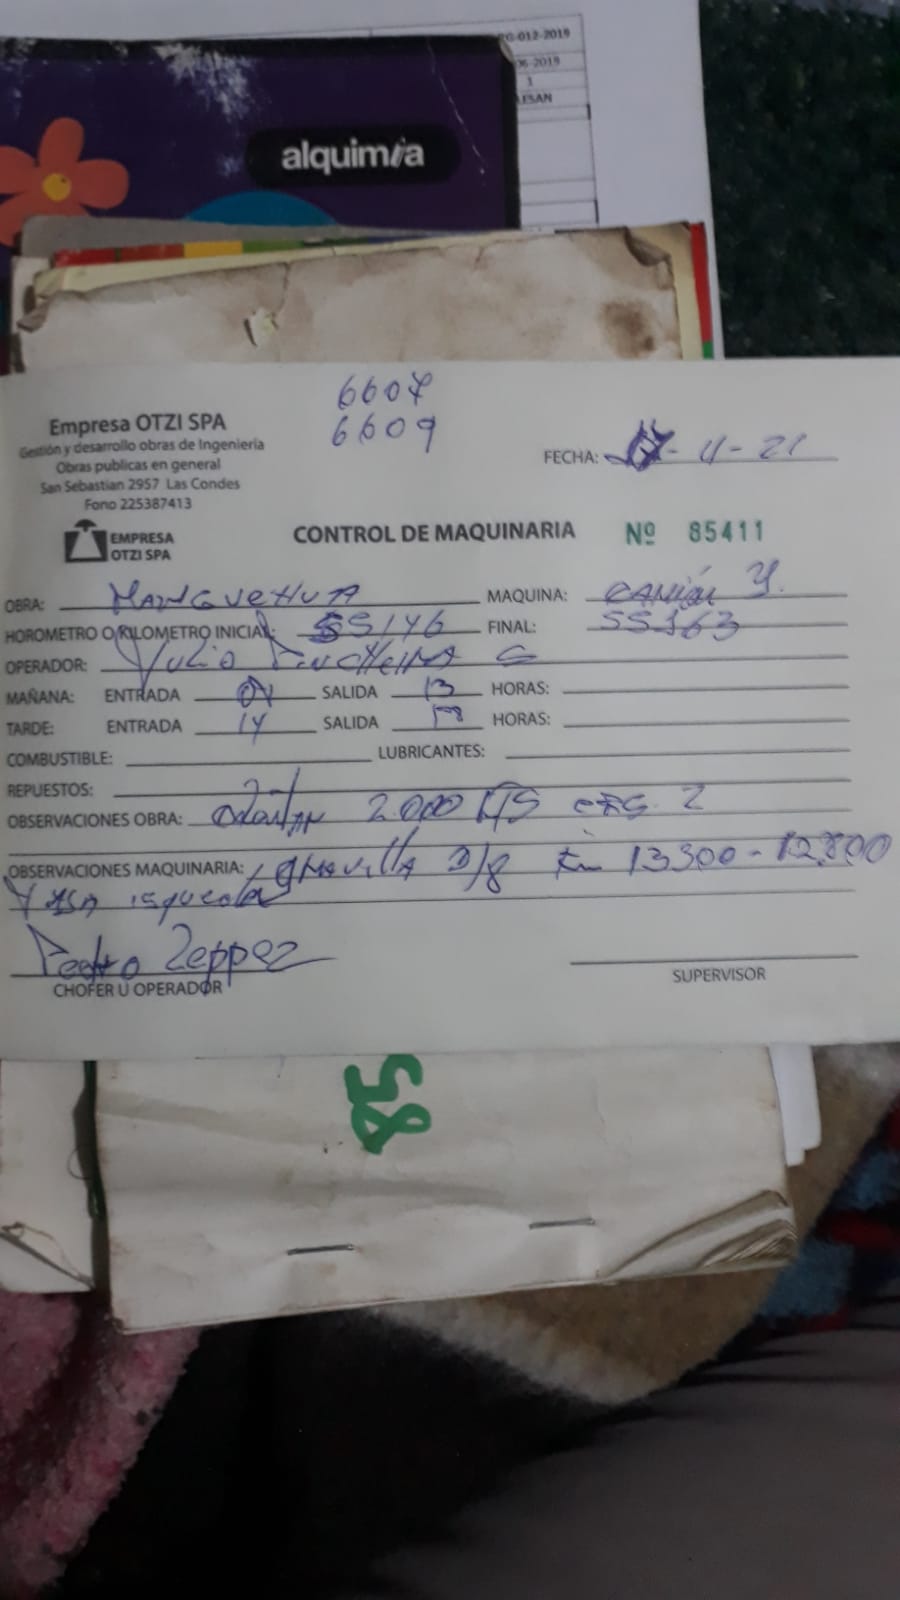 RG-012-2019
06-2019
1
LESAN
alquimia
6607
6609
Empresa OTZI SPA
Gestión y desarrollo obras de Ingeniería
Obras publicas en general
San Sebastian 2957 Las Condes
Fono 225387413
FECHA: - 11 - 21
EMPRESA
OTZI SPA
CONTROL DE MAQUINARIA Nº 85411
OBRA: MANQUEHUA MAQUINA: CAMIÓN Y.
HOROMETRO O KILOMETRO INICIAL: 55146 FINAL: 55163
OPERADOR: Julio Pincheira S
MAÑANA: ENTRADA 08 SALIDA 13 HORAS:
TARDE: ENTRADA 14 SALIDA 18 HORAS:
COMBUSTIBLE: LUBRICANTES:
REPUESTOS:
OBSERVACIONES OBRA: 2.000 LTS CRS 2
OBSERVACIONES MAQUINARIA: GRAVILLA 3/8 Km 13300 - 12.800
isquerda
Pedro Zeppez
CHOFER U OPERADOR
SUPERVISOR
58